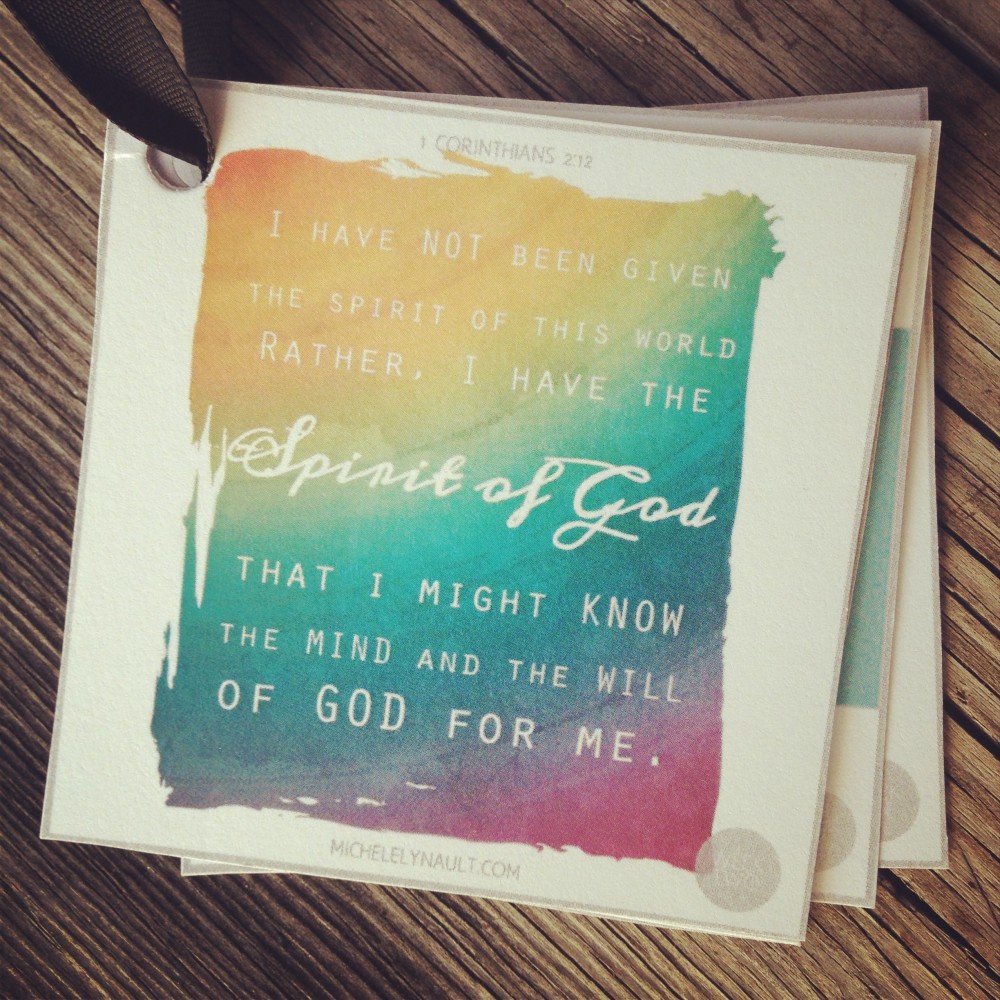 1 CORINTHIANS 2:12
I HAVE NOT BEEN GIVEN
THE SPIRIT OF THIS WORLD
RATHER, I HAVE THE
Spirit of God
THAT I MIGHT KNOW
THE MIND AND THE WILL
OF GOD FOR ME.
MICHELELYNAULT.COM